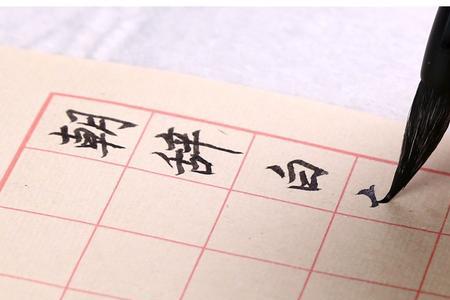 朝辞白